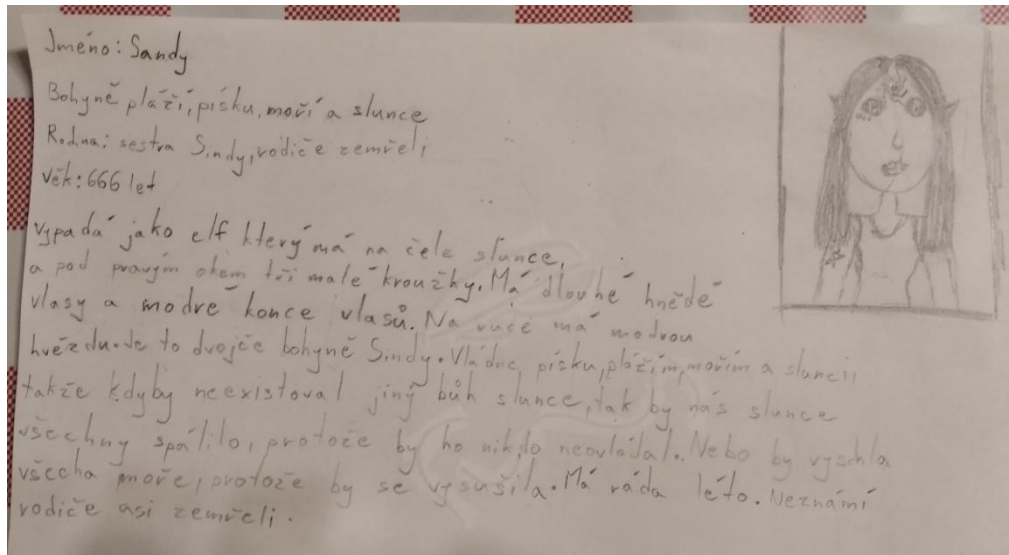 Jméno: Sandy
Bohyně pláží, písku, moří a slunce
Rodina: sestra Sindy, rodiče zemřeli
věk: 666 let
vypadá jako elf který má na čele slunce,
a pod pravým okem tři malé kroužky. Má dlouhé hnědé
vlasy a modré konce vlasů. Na ruce má modrou
hvězdu. Je to dvojče bohyně Sindy. Vládne písku, plážím, mořím a slunci,
takže kdyby neexistoval jiný bůh slunce, tak by nás slunce
všechny spálilo, protože by ho nikdo neovládal. Nebo by vyschla
všecha moře, protože by se vysušila. Má ráda léto. Neznámí
rodiče asi zemřeli.